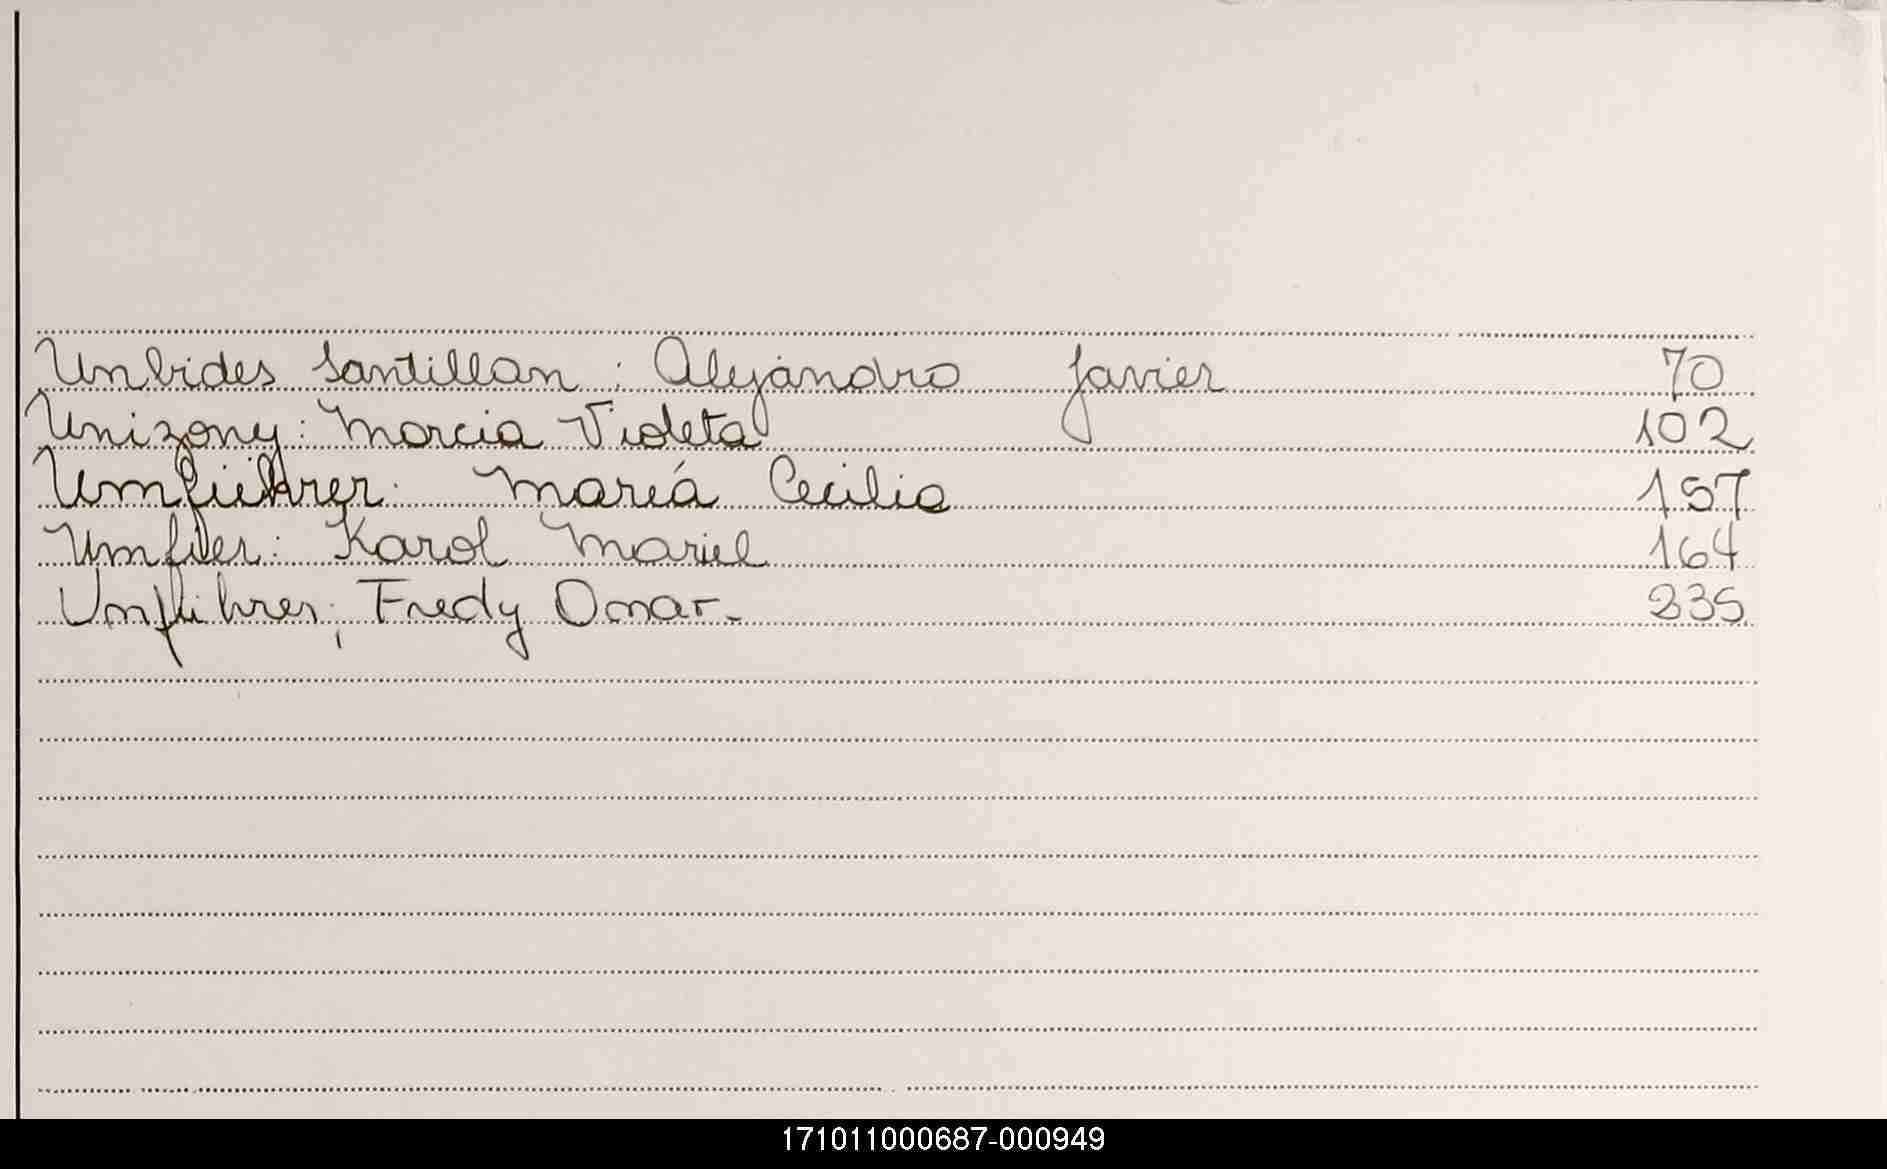 Unbides Santillan : Alejandro Javier 70
Unizony : Marcia Violeta 102
Umfuehrer. María Cecilia 157
Umfuer : Karol Mariel 164
Umfuhrer, Fredy Omar.- 235
171011000687-000949